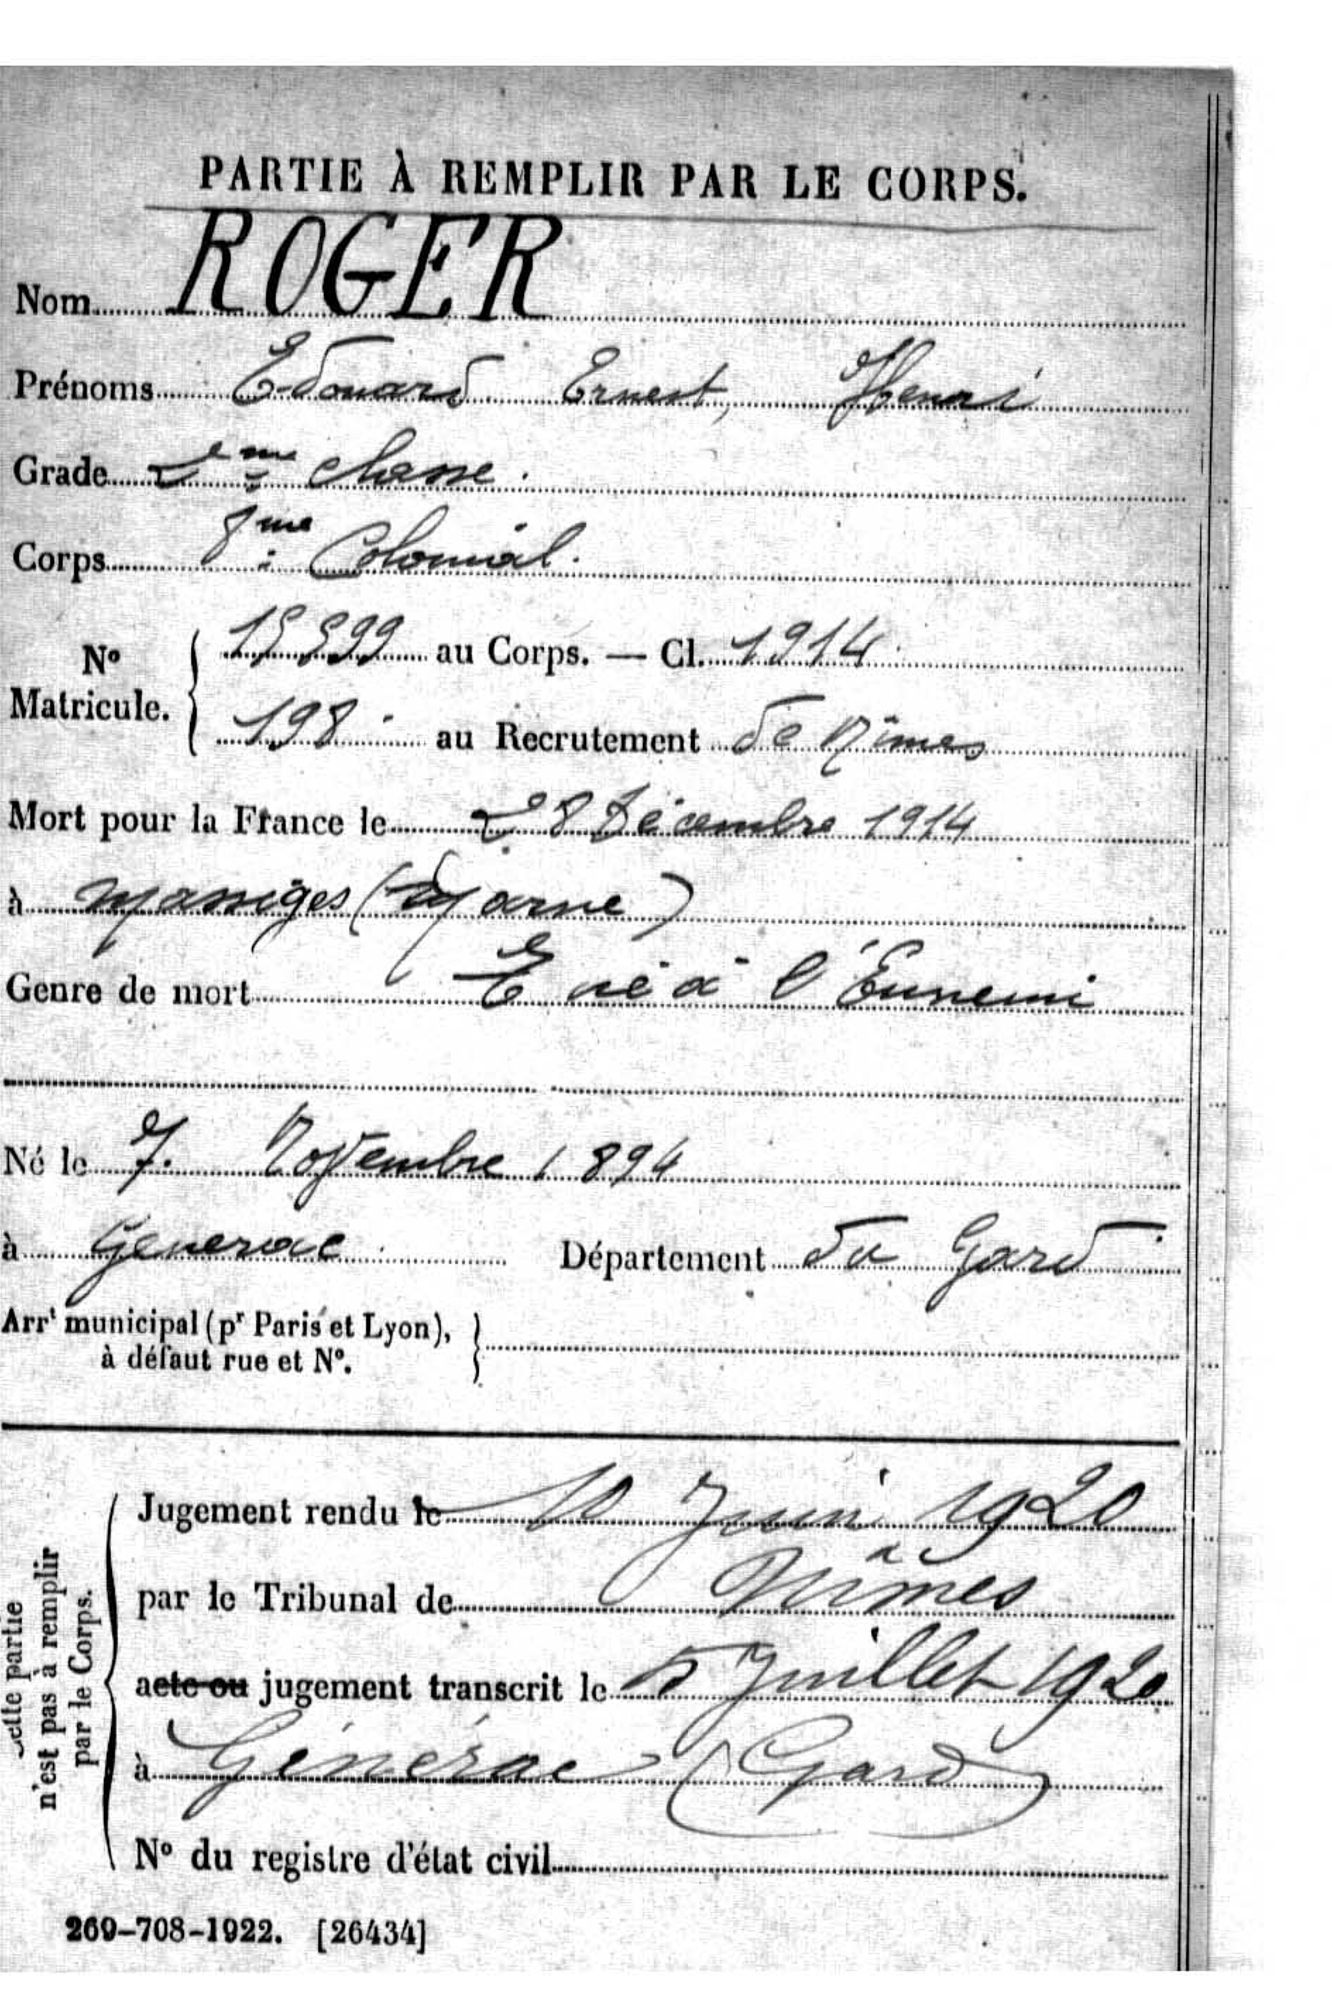 PARTIE À REMPLIR PAR LE CORPS.
Nom ROGER
Prénoms Edouard Ernest, Henri
Grade 2eme classe.
Corps 8me Colonial.
No Matricule. { 15599 au Corps. — Cl. 1914
198 au Recrutement de Nîmes
Mort pour la France le 28 Décembre 1914
à Massiges (Marne)
Genre de mort Tué à l'Ennemi
Né le 7. Novembre 1894
à Generac Département du Gard
Arrt municipal (pr Paris et Lyon), }
à défaut rue et No.
Cette partie
n'est pas à remplir
par le Corps.
Jugement rendu le 10 Juin 1920
par le Tribunal de Nîmes
acte ou jugement transcrit le 5 Juillet 1920
à Générac (Gard)
No du registre d'état civil
269-708-1922. [26434]